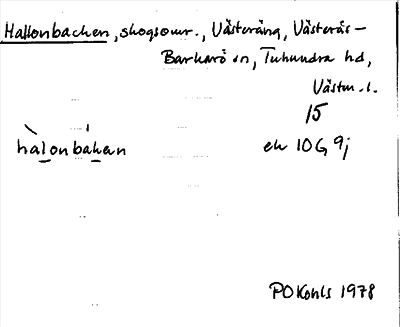 Hallonbacken, skogsomr., Västeräng, Västerås-
Barkarö sn, Tuhundra hd,
Västm. l.
15
halonbakan
ek 10G 9j
PO Kohls 1978